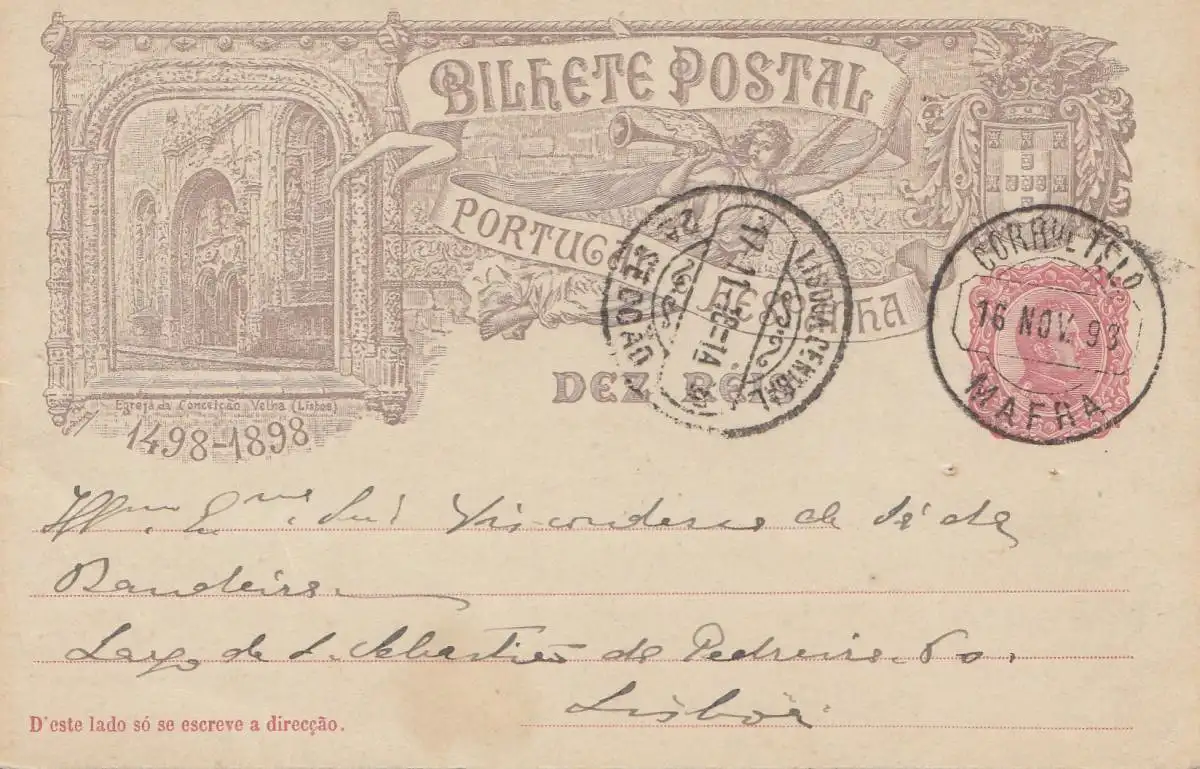 BILHETE POSTAL
PORTUGAL E HESPANHA
DEZ REIS
Egreja da Conceição Velha (Lisboa)
1498-1898
LISBOA CENTRAL
17-11
2ª SECÇÃO
CORRº E TELº
16 NOV. 98
MAFRA
Illmª. Exmª. Snrª Viscondessa de Sá da
Bandeira
Largo de S. Sebastião da Pedreira. 60.
Lisboa
D'este lado só se escreve a direcção.